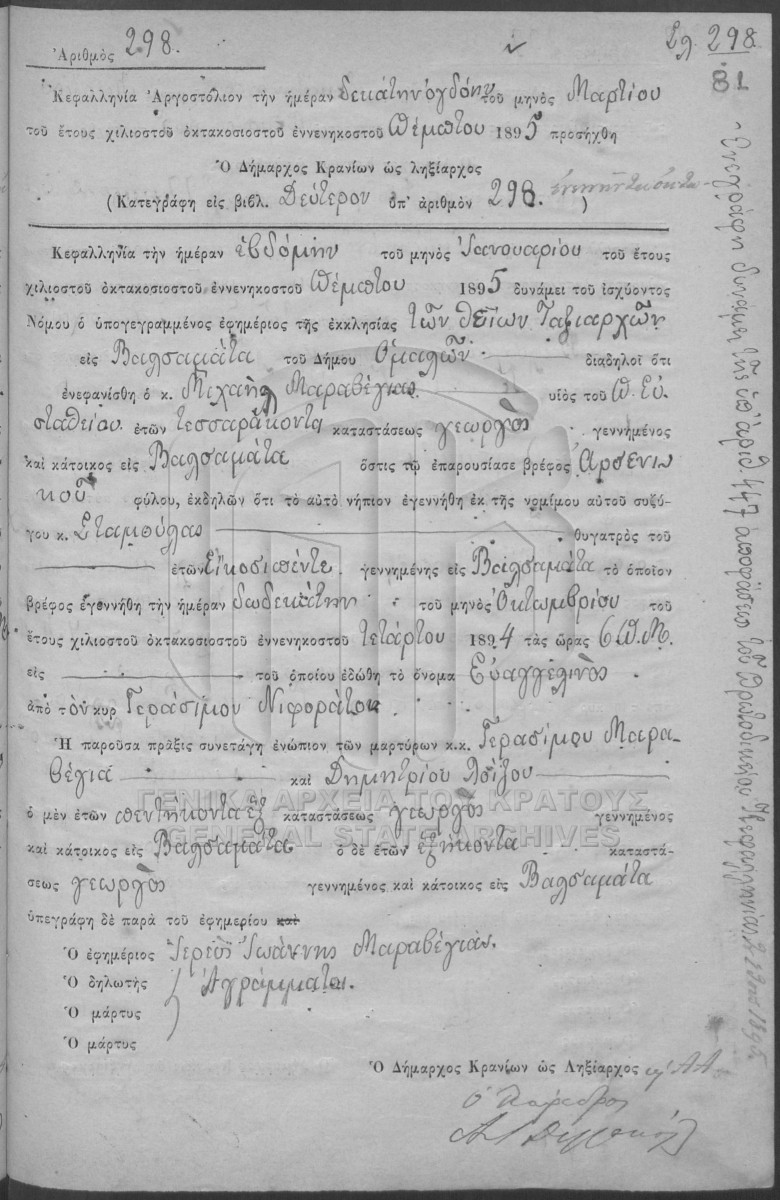 Ἀριθμὸς 298. Σλ. 298
81
Κεφαλληνία Ἀργοστόλιον τὴν ἡμέραν δεκάτην ὀγδόην τοῦ μηνὸς Μαρτίου
τοῦ ἔτους χιλιοστοῦ ὀκτακοσιοστοῦ ἐννενηκοστοῦ Πέμπτου 1895 προσήχθη
Ὁ Δήμαρχος Κρανίων ὡς ληξίαρχος
(Κατεγράφη εἰς βιβλ. Δεύτερον ὑπ' ἀριθμὸν 298. )
Κεφαλληνία τὴν ἡμέραν ἑβδόμην τοῦ μηνὸς Ἰανουαρίου τοῦ ἔτους
χιλιοστοῦ ὀκτακοσιοστοῦ ἐννενηκοστοῦ Πέμπτου 1895 δυνάμει τοῦ ἰσχύοντος
Νόμου ὁ ὑπογεγραμμένος ἐφημέριος τῆς ἐκκλησίας τῶν θείων Ταξιαρχῶν
εἰς Βαλσαμάτα τοῦ Δήμου Ὁμαλῶν διαδηλοῖ ὅτι
ἐνεφανίσθη ὁ κ. Μιχαὴλ Μαραβέγιας υἱὸς τοῦ Π. Εὐ
σταθείου ἐτῶν τεσσαράκοντα καταστάσεως γεωργὸς γεννημένος
καὶ κάτοικος εἰς Βαλσαμάτα ὅστις τῷ ἐπαρουσίασε βρέφος Ἀρσενι
κοῦ φύλου, ἐκδηλῶν ὅτι τὸ αὐτὸ νήπιον ἐγεννήθη ἐκ τῆς νομίμου αὐτοῦ συζύ-
γου κ. Σταμούλας θυγατρὸς τοῦ
ἐτῶν Εἰκοσιπέντε γεννημένης εἰς Βαλσαμάτα τὸ ὁποῖον
βρέφος ἐγεννήθη τὴν ἡμέραν δωδεκάτην τοῦ μηνὸς Ὀκτωμβρίου τοῦ
ἔτους χιλιοστοῦ ὀκτακοσιοστοῦ ἐννενηκοστοῦ τετάρτου 1894 τὰς ὥρας 6 Π.Μ.
εἰς τοῦ ὁποίου ἐδώθη τὸ ὄνομα Εὐαγγελινὸς
ἀπὸ τὸν κυρ Γεράσιμου Νιφοράτου
Ἡ παροῦσα πρᾶξις συνετάγη ἐνώπιον τῶν μαρτύρων κ.κ. Γερασίμου Μαρα-
βέγια καὶ Δημητρίου
ὁ μὲν ἐτῶν πεντήκοντα ἓξ καταστάσεως γεωργὸς γεννημένος
ΓΕΝΙΚΑ ΑΡΧΕΙΑ ΤΟΥ ΚΡΑΤΟΥΣ
GENERAL STATE ARCHIVES
καὶ κάτοικος εἰς Βαλσαμάτα ὁ δὲ ἐτῶν ἑξήκοντα καταστά-
σεως γεωργὸς γεννημένος καὶ κάτοικος εἰς Βαλσαμάτα
ὑπεγράφη δὲ παρὰ τοῦ ἐφημερίου καὶ
Ὁ ἐφημέριος Ἱερεὺς Ἰωάννης Μαραβέγιας.
Ὁ δηλωτὴς Ἀγράμματοι.
Ὁ μάρτυς
Ὁ μάρτυς
Ὁ Δήμαρχος Κρανίων ὡς Ληξίαρχος
ὁ Πάρεδρος
Ἐνεγράφη δυνάμει τῆς ὑπ' ἀριθ 447 ἀποφάσεως τοῦ Πρωτοδικείου Κεφαλληνίας 1895